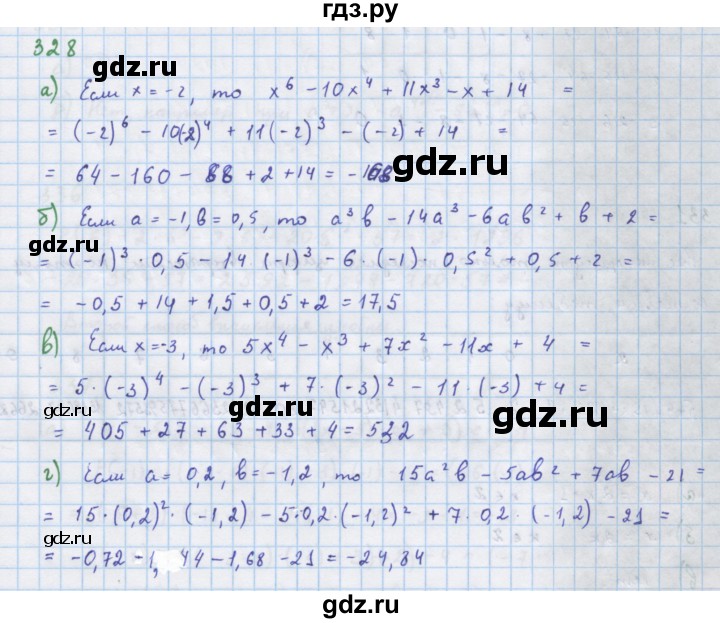 гдз.ру
328
а) Если x = -2, то x⁶ - 10x⁴ + 11x³ - x + 14 =
= (-2)⁶ - 10(-2)⁴ + 11(-2)³ - (-2) + 14 =
gdz.ru
= 64 - 160 - 88 + 2 + 14 = -168
б) Если a = -1, b = 0,5, то a³b - 14a³ - 6ab² + b + 2 =
gdz.ru
= (-1)³ · 0,5 - 14 (-1)³ - 6 · (-1) · 0,5² + 0,5 + 2 =
= -0,5 + 14 + 1,5 + 0,5 + 2 = 17,5
в) Если x = -3, то 5x⁴ - x³ + 7x² - 11x + 4 =
= 5 · (-3)⁴ - (-3)³ + 7 · (-3)² - 11 · (-3) + 4 =
gdz.ru
gdz.ru
= 405 + 27 + 63 + 33 + 4 = 532
г) Если a = 0,2, b = -1,2, то 15a²b - 5ab² + 7ab - 21 =
= 15 · (0,2)² · (-1,2) - 5 · 0,2 · (-1,2)² + 7 · 0,2 · (-1,2) - 21 =
gdz.ru
= -0,72 - 1,44 - 1,68 - 21 = -24,84
gdz.ru